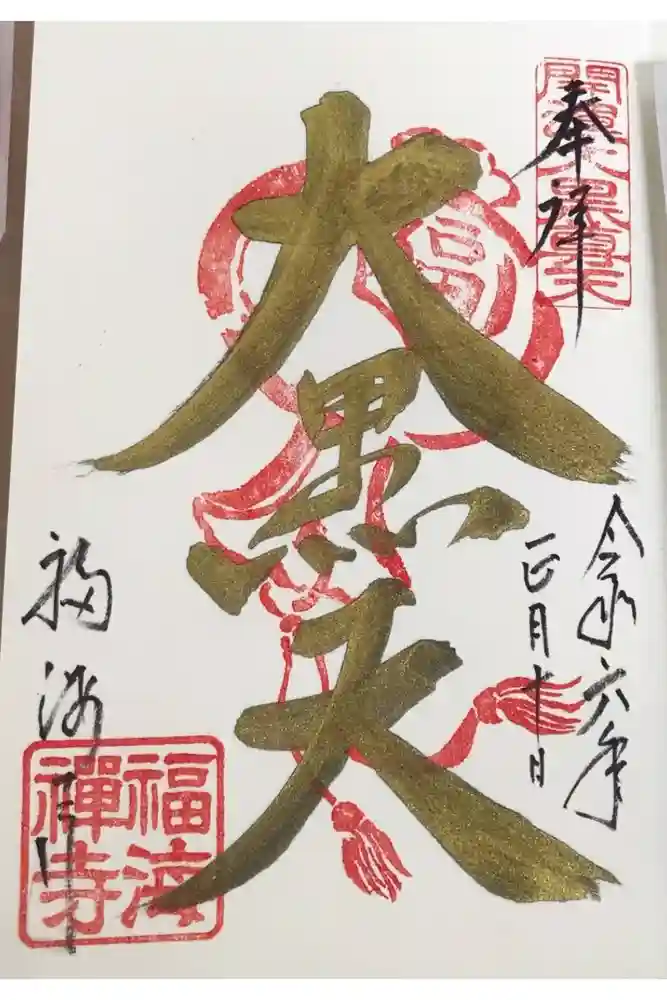 奉拝
開運大黒尊天
令和六年
正月十日
大黒天
福
福海寺
福海禅寺